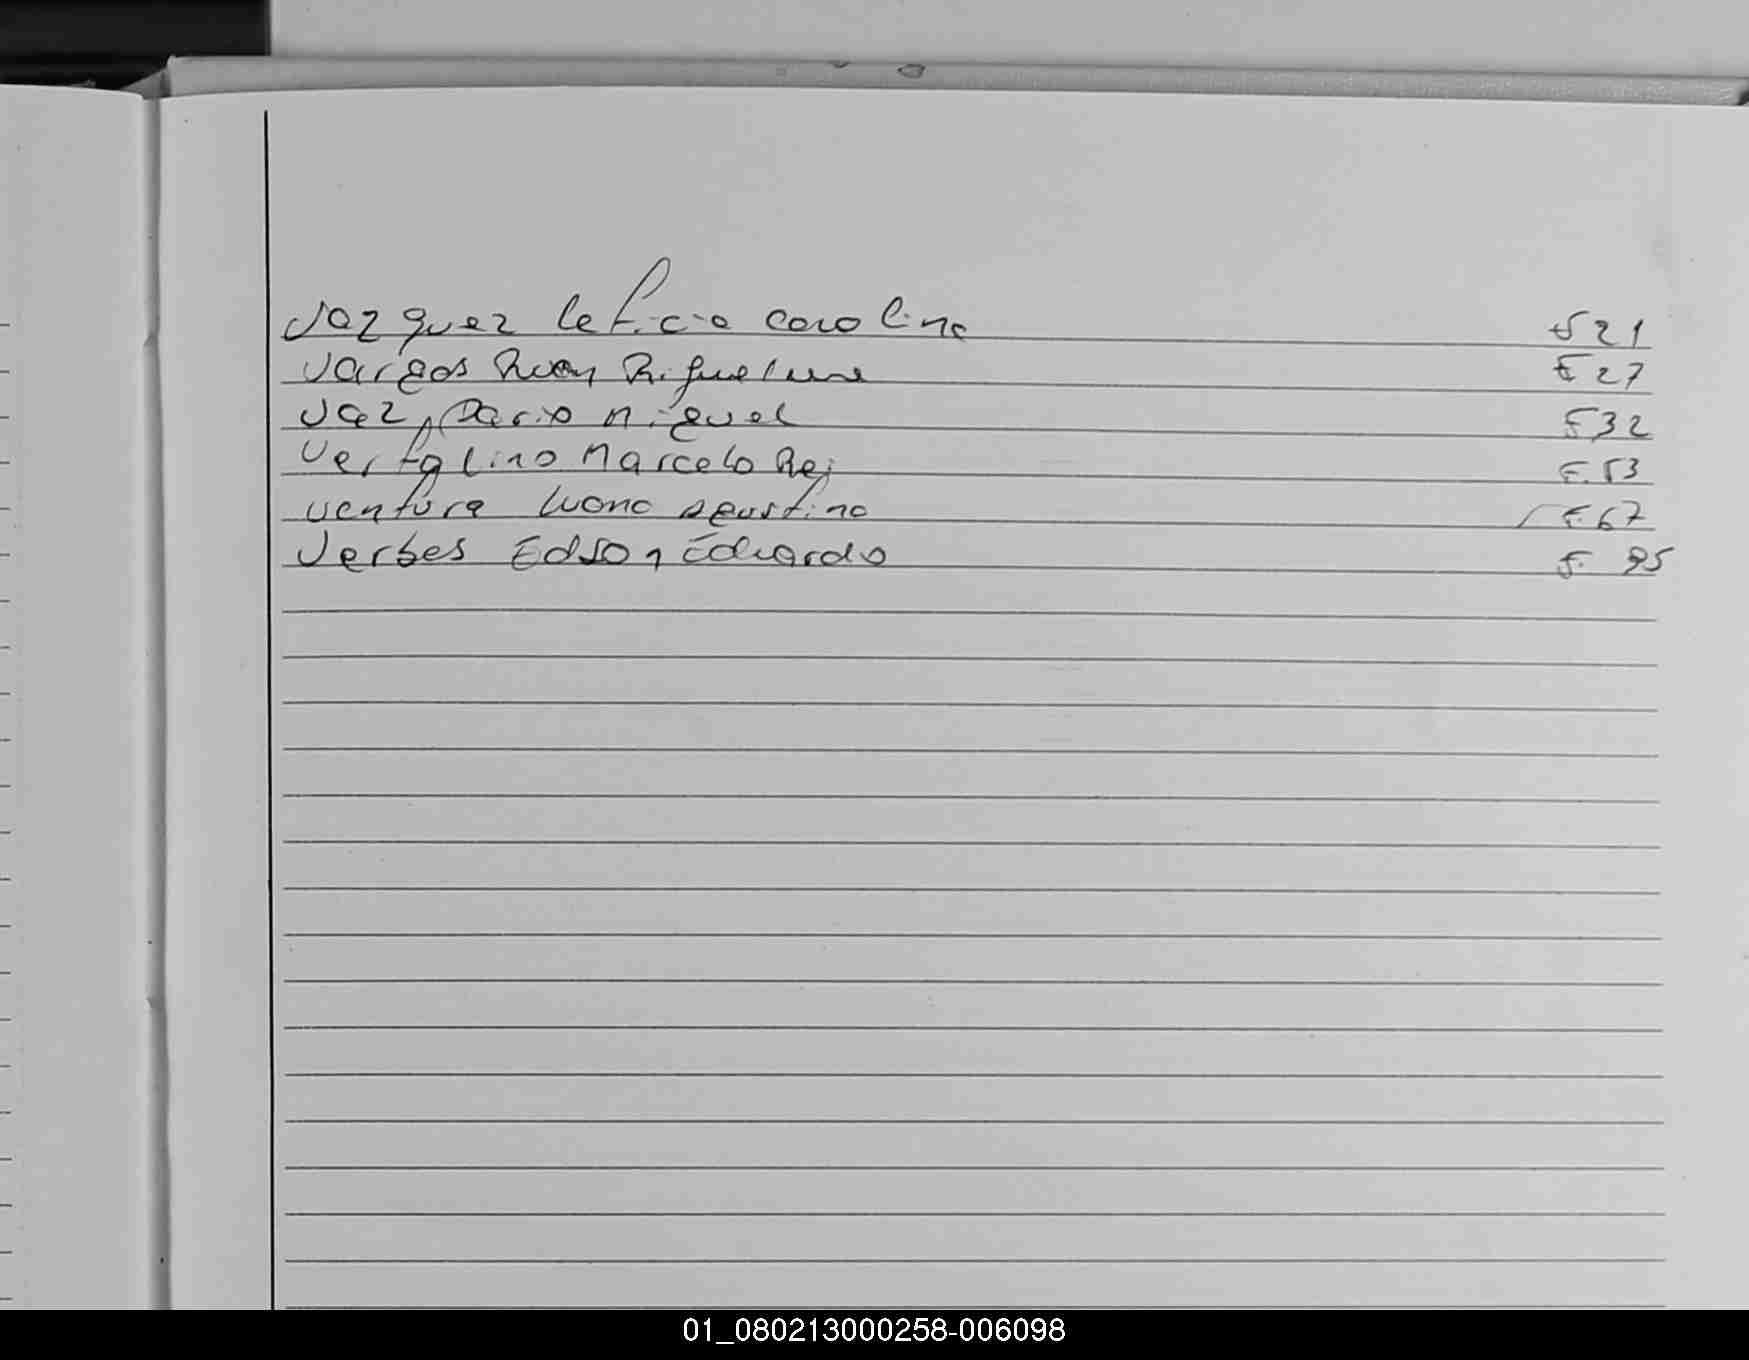 Vazquez leticia carolina F 21
Vargas Ruan F 27
Vaz, Dario Miguel F 32
Vertalino Marcelo Rej F. 53
Ventura luana agustina F. 67
Verbes Edson Eduardo F. 95
01_080213000258-006098